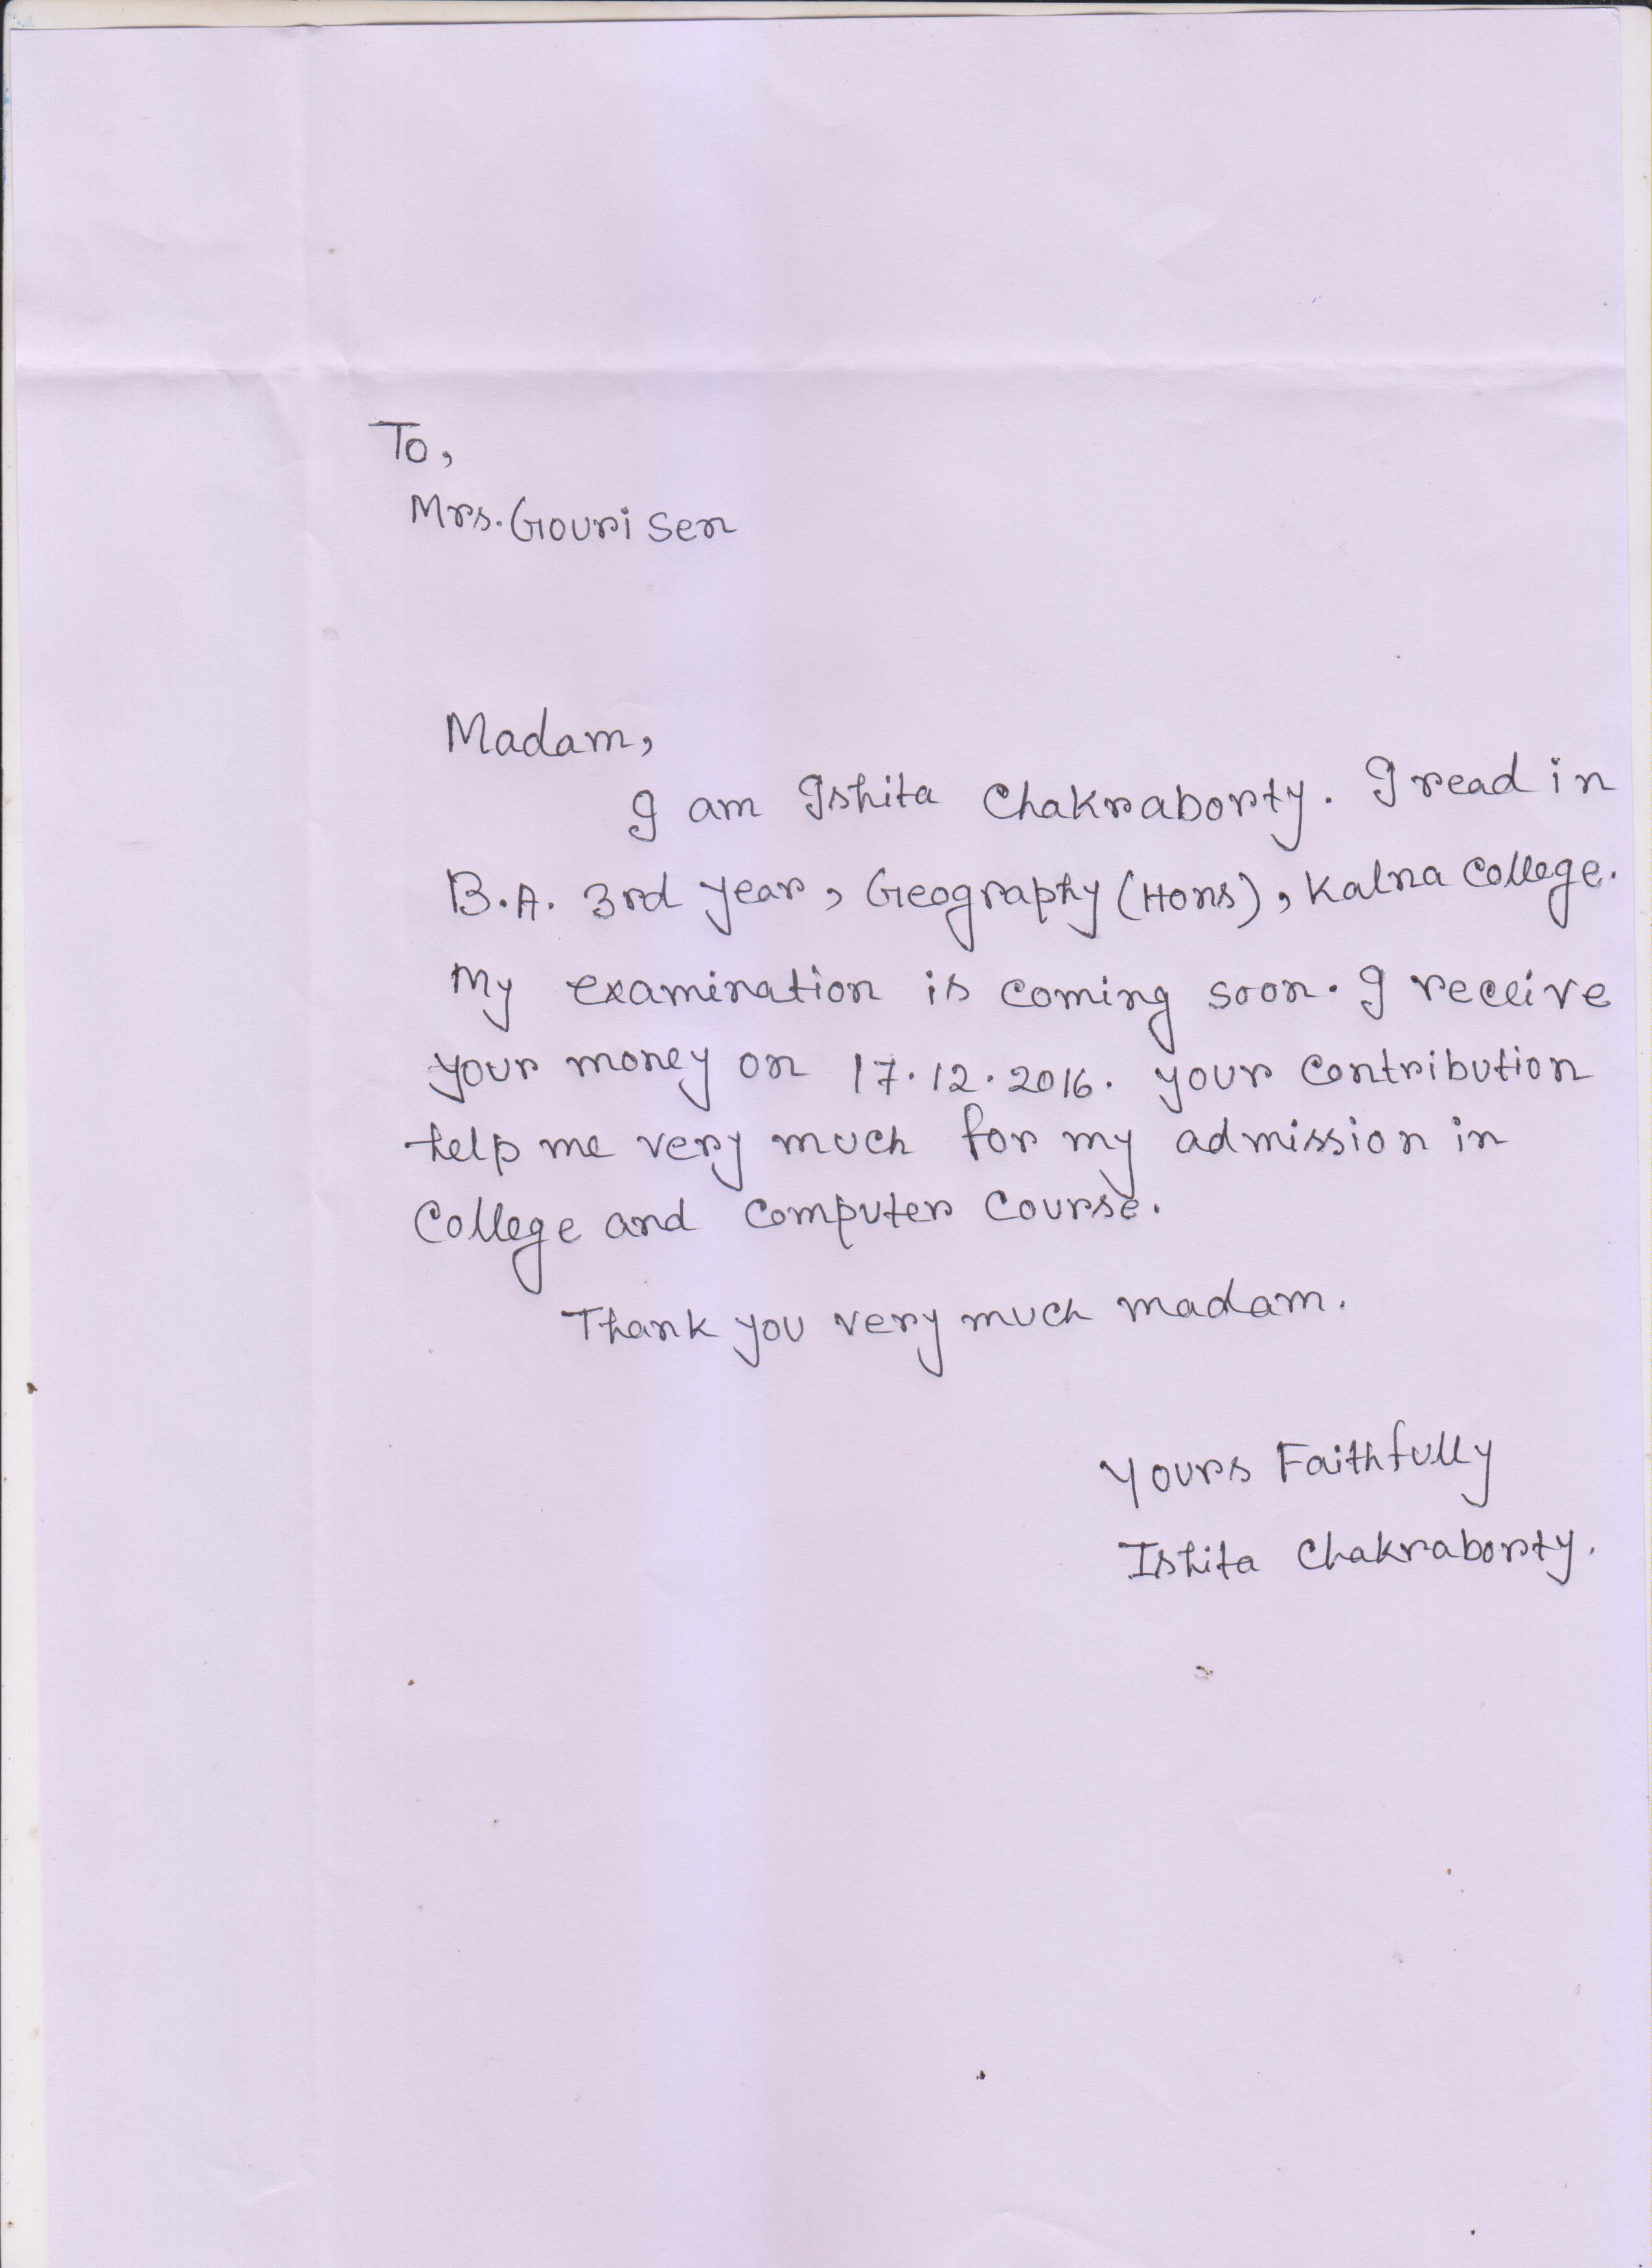 To,
Mrs. Gouri Sen
Madam,
I am Ishita Chakraborty. I read in
B.A. 3rd year, Geography (Hons), Kalna College.
My examination is coming soon. I receive
your money on 17.12.2016. your contribution
help me very much for my admission in
College and computer course.
Thank you very much madam.
Yours Faithfully
Ishita Chakraborty.